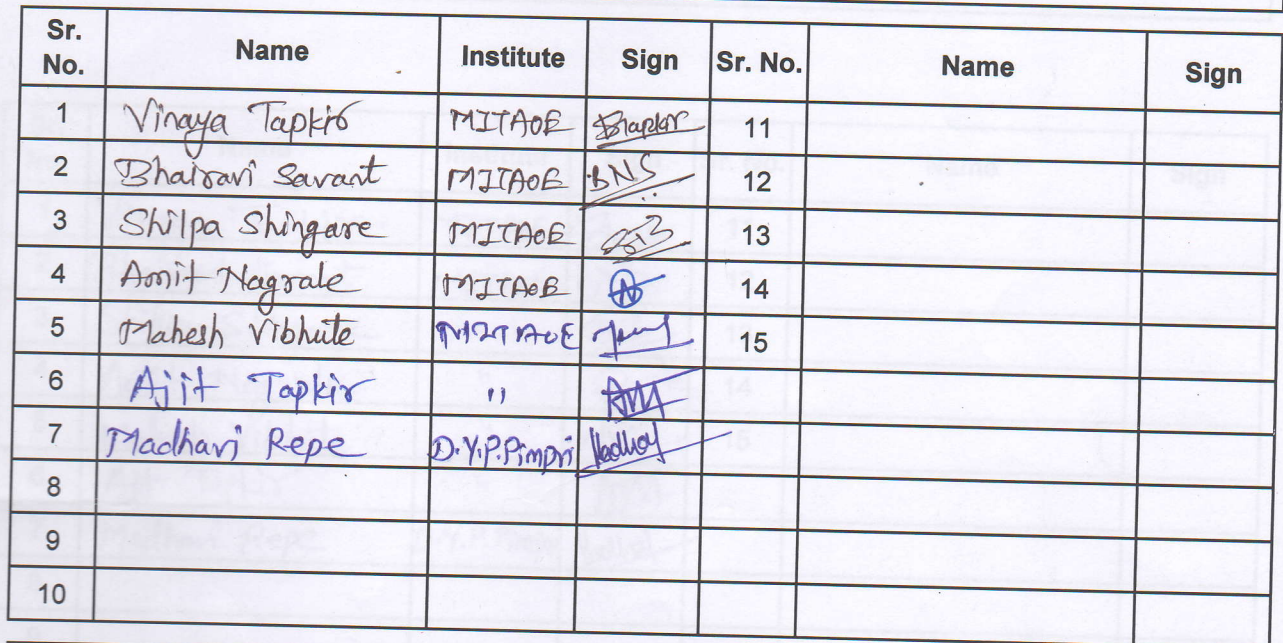 Sr. No. Name Institute Sign Sr. No. Name Sign
1 Vinaya Tapkir MITAOE 11
2 Bhairavi Savant MITAOE BNS 12
3 Shilpa Shingare MITAOE 13
4 Amit Nagrale MITAOE 14
5 Mahesh Vibhute MITAOE 15
6 Ajit Tapkir "
7 Madhavi Repe D.Y.P.Pimpri
8
9
10